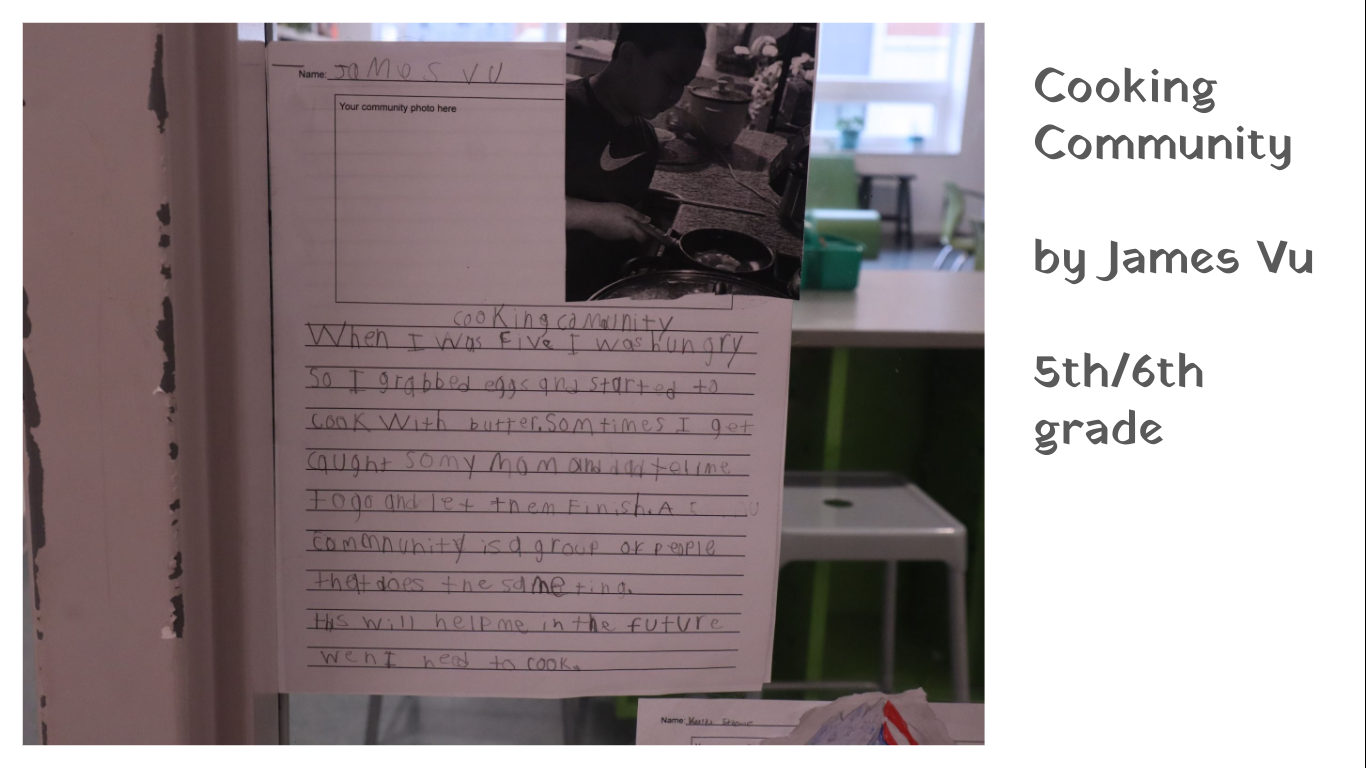 Name: JaMes VU
Your community photo here
cooking comunity
When I was Five I was hungry
So I grabbed eggs and started to
cook With butter. Somtimes I get
caught so my Mom and dad tell me
to go and let them Finish. A
commnunity is a group of people
that does the same ting.
this will help me in the future
wen I need to cook.
Name:
Cooking
Community
by James Vu
5th/6th
grade